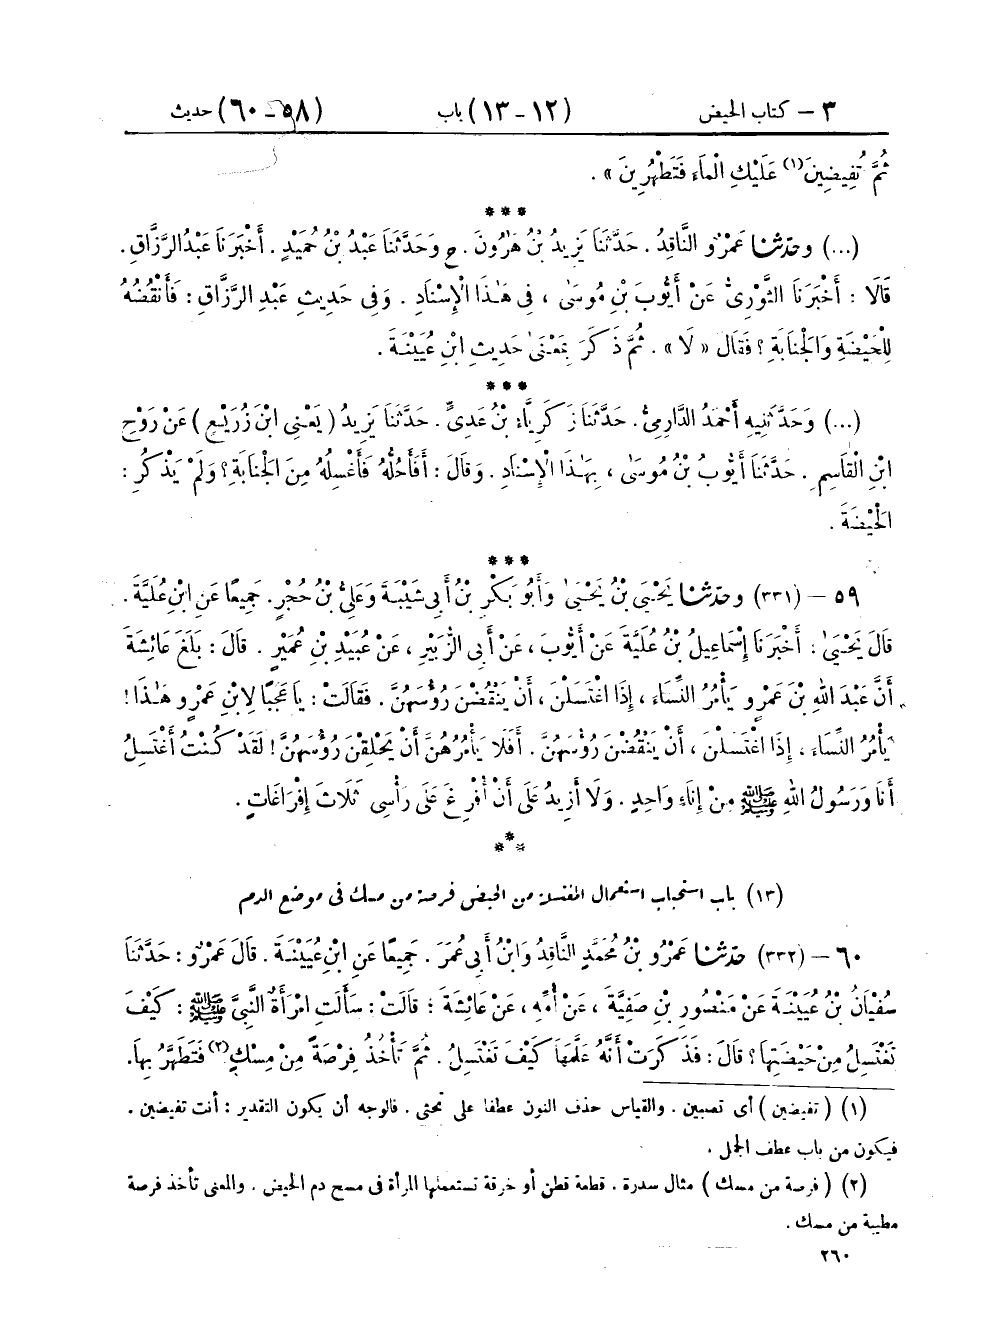 ٣ – كتاب الحيض (١٢ - ١٣) باب (٥٨ - ٦٠) حديث
ثُمَّ تُفِيضِينَ(١) عَلَيْكِ الْمَاءَ فَتَطْهُرِينَ» .
***
(...) وحدّثنا عَمْرٌو النَّاقِدُ . حَدَّثَنَا يَزِيدُ بْنُ هَرُونَ . ح وَحَدَّثَنَا عَبْدُ بْنُ حُمَيْدٍ . أَخْبَرَنَا عَبْدُالرَّزَّاقِ .
قَالَا : أَخْبَرَنَا الثَّوْرِىُّ عَنْ أَيُّوبَ بْنِ مُوسَىٰ ، فِى هَٰذَا الْإِسْنَادِ . وَفِى حَدِيثِ عَبْدِ الرَّزَّاقِ : فَأَنْقُضُهُ
لِلْحَيْضَةِ وَالْجَنَابَةِ ؟ فَقَالَ « لَا » . ثُمَّ ذَكَرَ بِمَعْنَىٰ حَدِيثِ ابْنِ عُيَيْنَةَ .
***
(...) وَحَدَّثَنِيهِ أَحْمَدُ الدَّارِمِىُّ . حَدَّثَنَا زَكَرِيَّاءُ بْنُ عَدِىٍّ . حَدَّثَنَا يَزِيدُ ( يَعْنِى ابْنَ زُرَيْعٍ ) عَنْ رَوْحِ
ابْنِ الْقَاسِمِ . حَدَّثَنَا أَيُّوبُ بْنُ مُوسَىٰ ، بِهَٰذَا الْإِسْنَادِ . وَقَالَ : أَفَأَحُلُّهُ فَأَغْسِلُهُ مِنَ الْجَنَابَةِ ؟ وَلَمْ يَذْكُرِ :
الْحَيْضَةَ .
***
٥٩ – (٣٣١) وحدّثنا يَحْيَىٰ بْنُ يَحْيَىٰ وَأَبُو بَكْرِ بْنُ أَبِى شَيْبَةَ وَعَلِىُّ بْنُ حُجْرٍ . جَمِيعًا عَنِ ابْنِ عُلَيَّةَ .
قَالَ يَحْيَىٰ : أَخْبَرَنَا إِسْمَاعِيلُ بْنُ عُلَيَّةَ عَنْ أَيُّوبَ ، عَنْ أَبِى الزُّبَيْرِ ، عَنْ عُبَيْدِ بْنِ عُمَيْرٍ . قَالَ : بَلَغَ عَائِشَةَ
أَنَّ عَبْدَ اللهِ بْنَ عَمْرٍو يَأْمُرُ النِّسَاءَ ، إِذَا اغْتَسَلْنَ ، أَنْ يَنْقُضْنَ رُؤُسَهُنَّ . فَقَالَتْ : يَا عَجَبًا لِابْنِ عَمْرٍو هَٰذَا !
يَأْمُرُ النِّسَاءَ ، إِذَا اغْتَسَلْنَ ، أَنْ يَنْقُضْنَ رُؤُسَهُنَّ . أَفَلَا يَأْمُرُهُنَّ أَنْ يَحْلِقْنَ رُؤُسَهُنَّ ! لَقَدْ كُنْتُ أَغْتَسِلُ
أَنَا وَرَسُولُ اللهِ ﷺ مِنْ إِنَاءٍ وَاحِدٍ . وَلَا أَزِيدُ عَلَىٰ أَنْ أُفْرِغَ عَلَىٰ رَأْسِى ثَلَاثَ إِفْرَاغَاتٍ .
***
(١٣) باب استحباب استعمال المغتسلة من الحيض فرصة من مسك فى موضع الدم
٦٠ – (٣٣٢) حدّثنا عَمْرُو بْنُ مُحَمَّدٍ النَّاقِدُ وَابْنُ أَبِى عُمَرَ . جَمِيعًا عَنِ ابْنِ عُيَيْنَةَ . قَالَ عَمْرٌو : حَدَّثَنَا
سُفْيَانُ بْنُ عُيَيْنَةَ عَنْ مَنْصُورِ بْنِ صَفِيَّةَ ، عَنْ أُمِّهِ ، عَنْ عَائِشَةَ ؛ قَالَتْ : سَأَلَتِ امْرَأَةٌ النَّبِىَّ ﷺ : كَيْفَ
تَغْتَسِلُ مِنْ حَيْضَتِهَا ؟ قَالَ : فَذَكَرَتْ أَنَّهُ عَلَّمَهَا كَيْفَ تَغْتَسِلُ . ثُمَّ تَأْخُذُ فِرْصَةً مِنْ مِسْكٍ(٢) فَتَطَهَّرُ بِهَا.
(١) ( تفيضين ) أى تصبين . والقياس حذف النون عطفا على تحثى . فالوجه أن يكون التقدير : أنت تفيضين .
فيكون من باب عطف الجمل .
(٢) ( فرصة من مسك ) مثال سدرة . قطعة قطن أو خرقة تستعملها المرأة فى مسح دم الحيض . والمعنى تأخذ فرصة
مطيبة من مسك .
٢٦٠